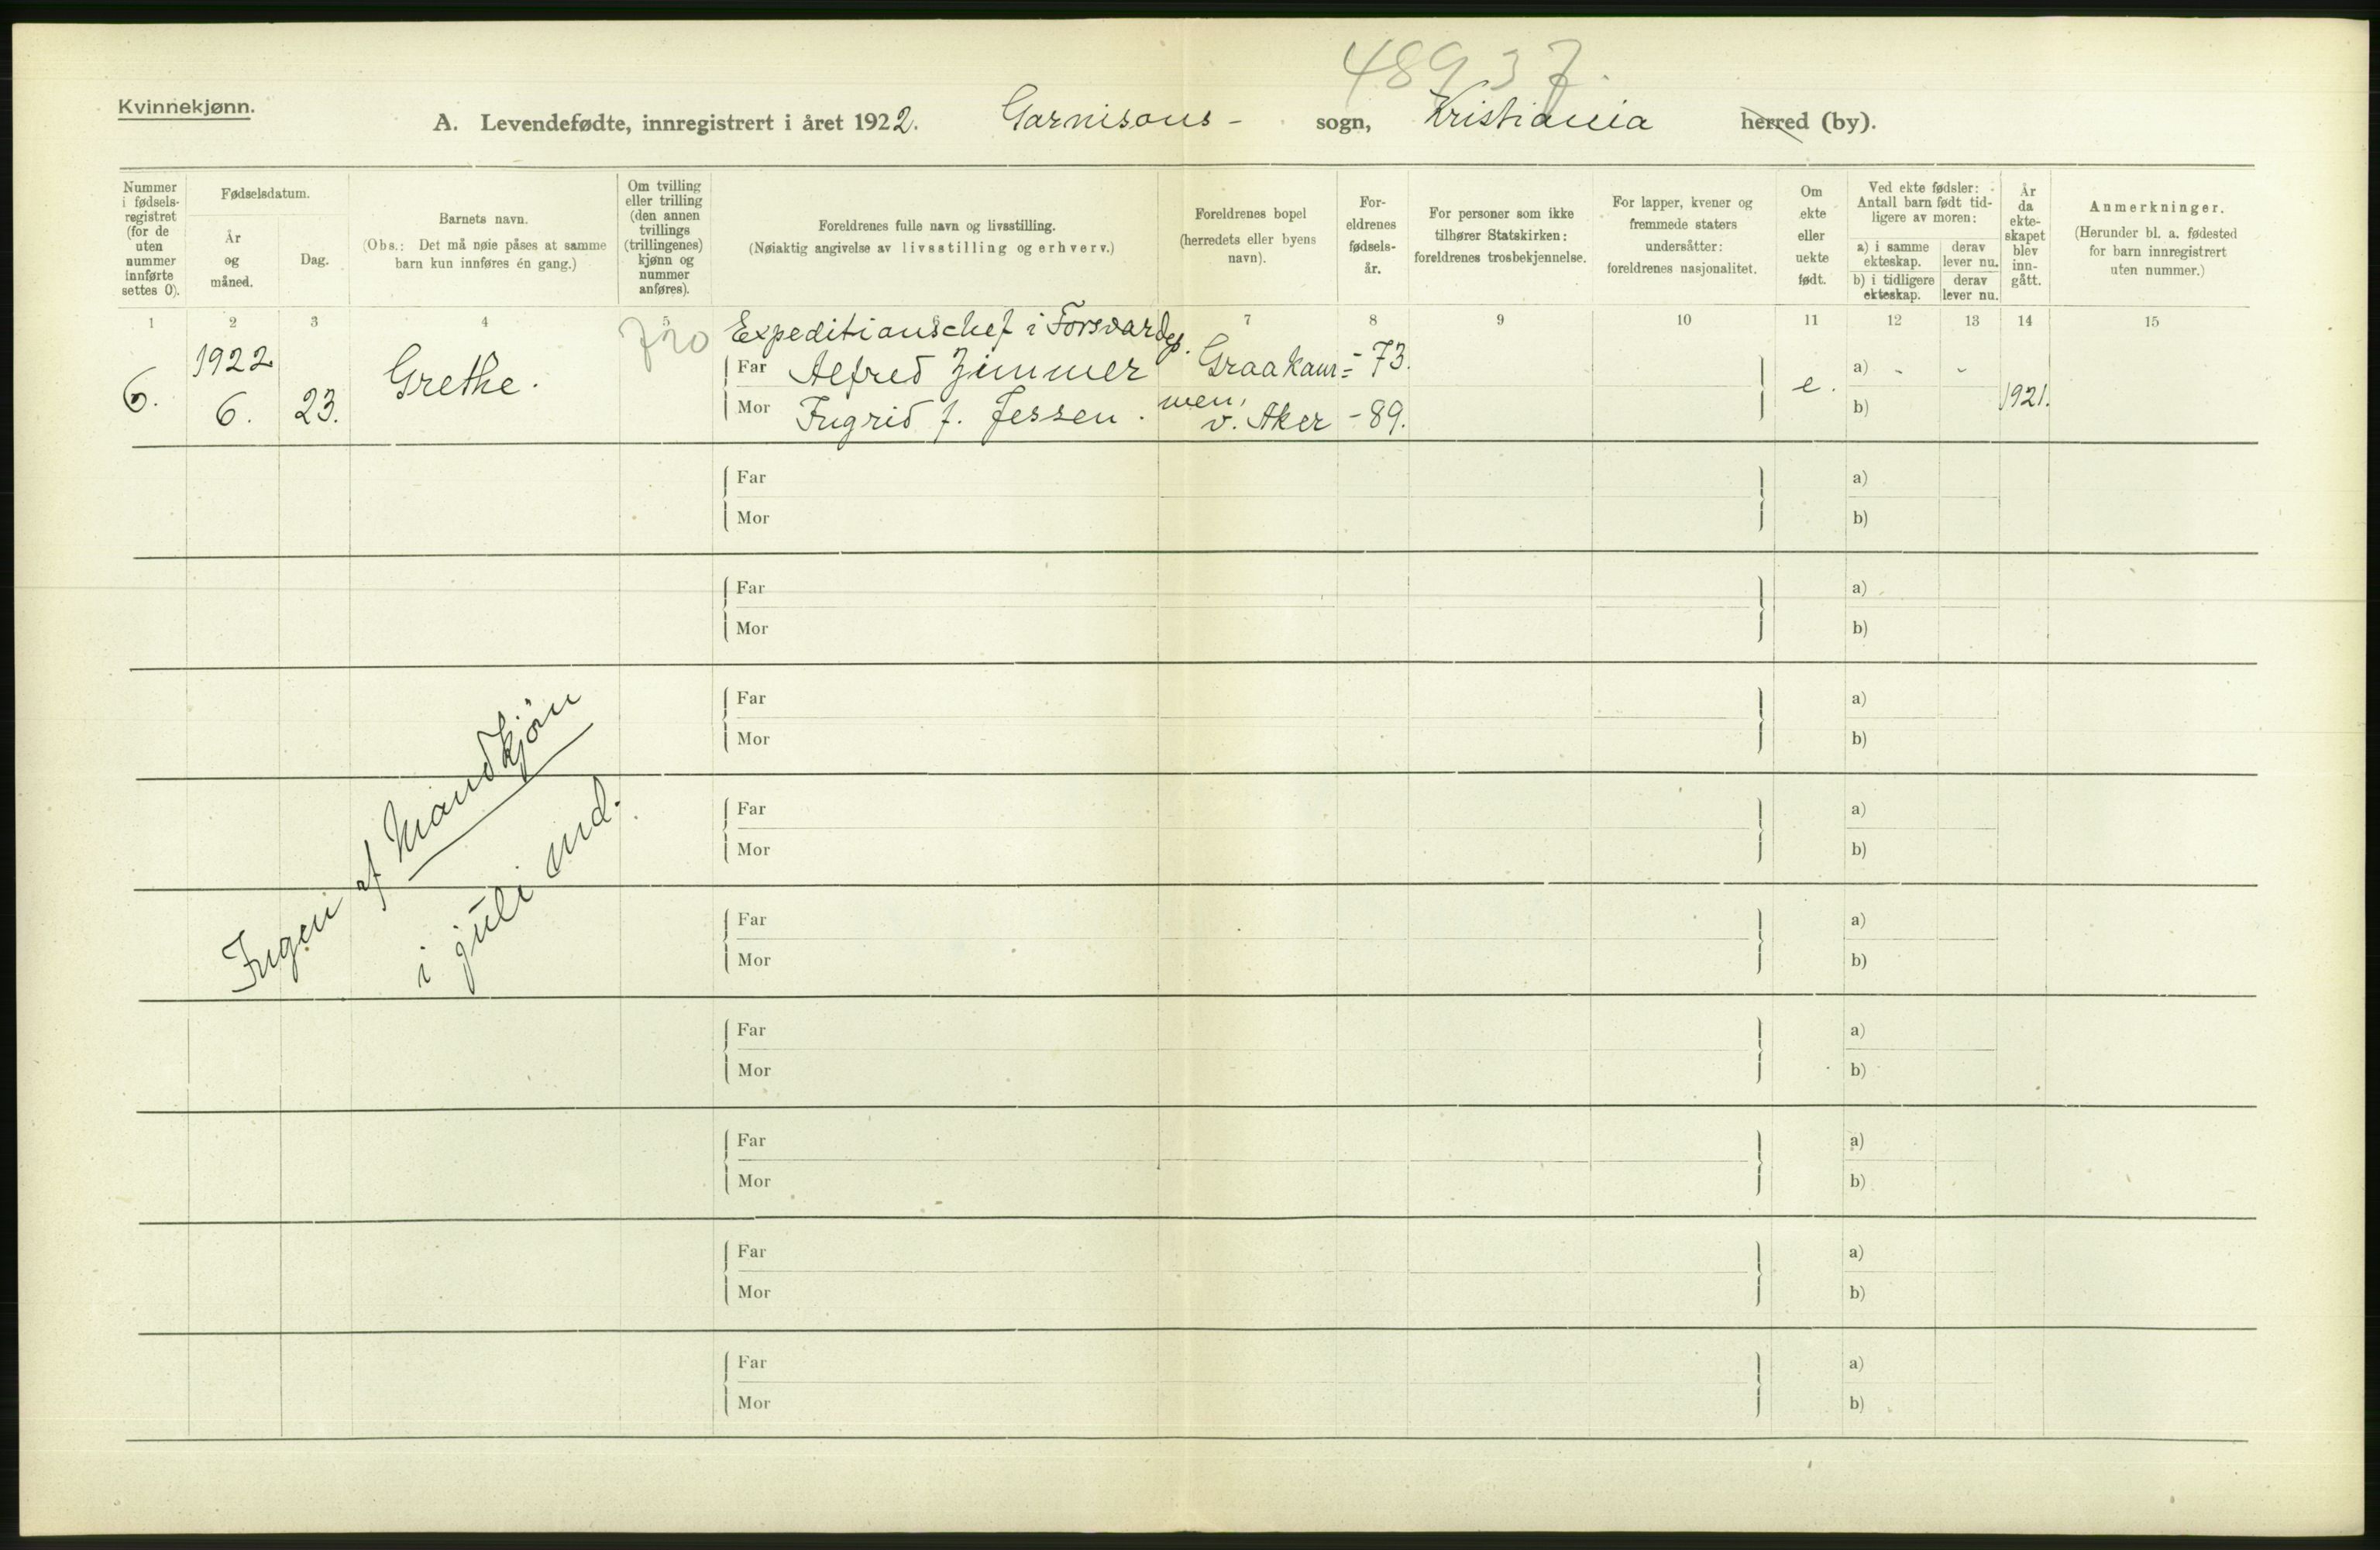 48937.
Kvinnekjønn.
A. Levendefødte, innregistrert i året 1922. Garnisons- sogn, Kristiania herred (by).
Nummer i fødsels-registret (for de uten nummer innførte settes 0).
Fødselsdatum.
År og måned.
Dag.
Barnets navn.
(Obs.: Det må nøie påses at samme barn kun innføres én gang.)
Om tvilling eller trilling (den annen tvillings (trillingenes) kjønn og nummer anføres).
Foreldrenes fulle navn og livsstilling.
(Nøiaktig angivelse av livsstilling og erhverv.)
Foreldrenes bopel (herredets eller byens navn).
For-eldrenes fødsels-år.
For personer som ikke tilhører Statskirken: foreldrenes trosbekjennelse.
For lapper, kvener og fremmede staters undersåtter: foreldrenes nasjonalitet.
Om ekte eller uekte født.
Ved ekte fødsler: Antall barn født tid-ligere av moren:
a) i samme ekteskap.
derav lever nu.
b) i tidligere ekteskap.
derav lever nu.
År da ekte-skapet blev inn-gått.
Anmerkninger.
(Herunder bl. a. fødested for barn innregistrert uten nummer.)
1 2 3 4 5 6 7 8 9 10 11 12 13 14 15
720 Expeditionschef i Forsvardep.
1922 Far Alfred Zimmer Graakam= - 73. a) - -
6. 6. 23. Grethe. men, e. 1921.
Mor Ingrid f. Jessen. v. Aker - 89. b)
Far a)
Mor b)
Far a)
Mor b)
Far a)
Mor b)
Far a)
Mor b)
Far a)
Mor b)
Far a)
Mor b)
Far a)
Mor b)
Far a)
Mor b)
Far a)
Mor b)
Ingen af Mandkjön
i juli md.